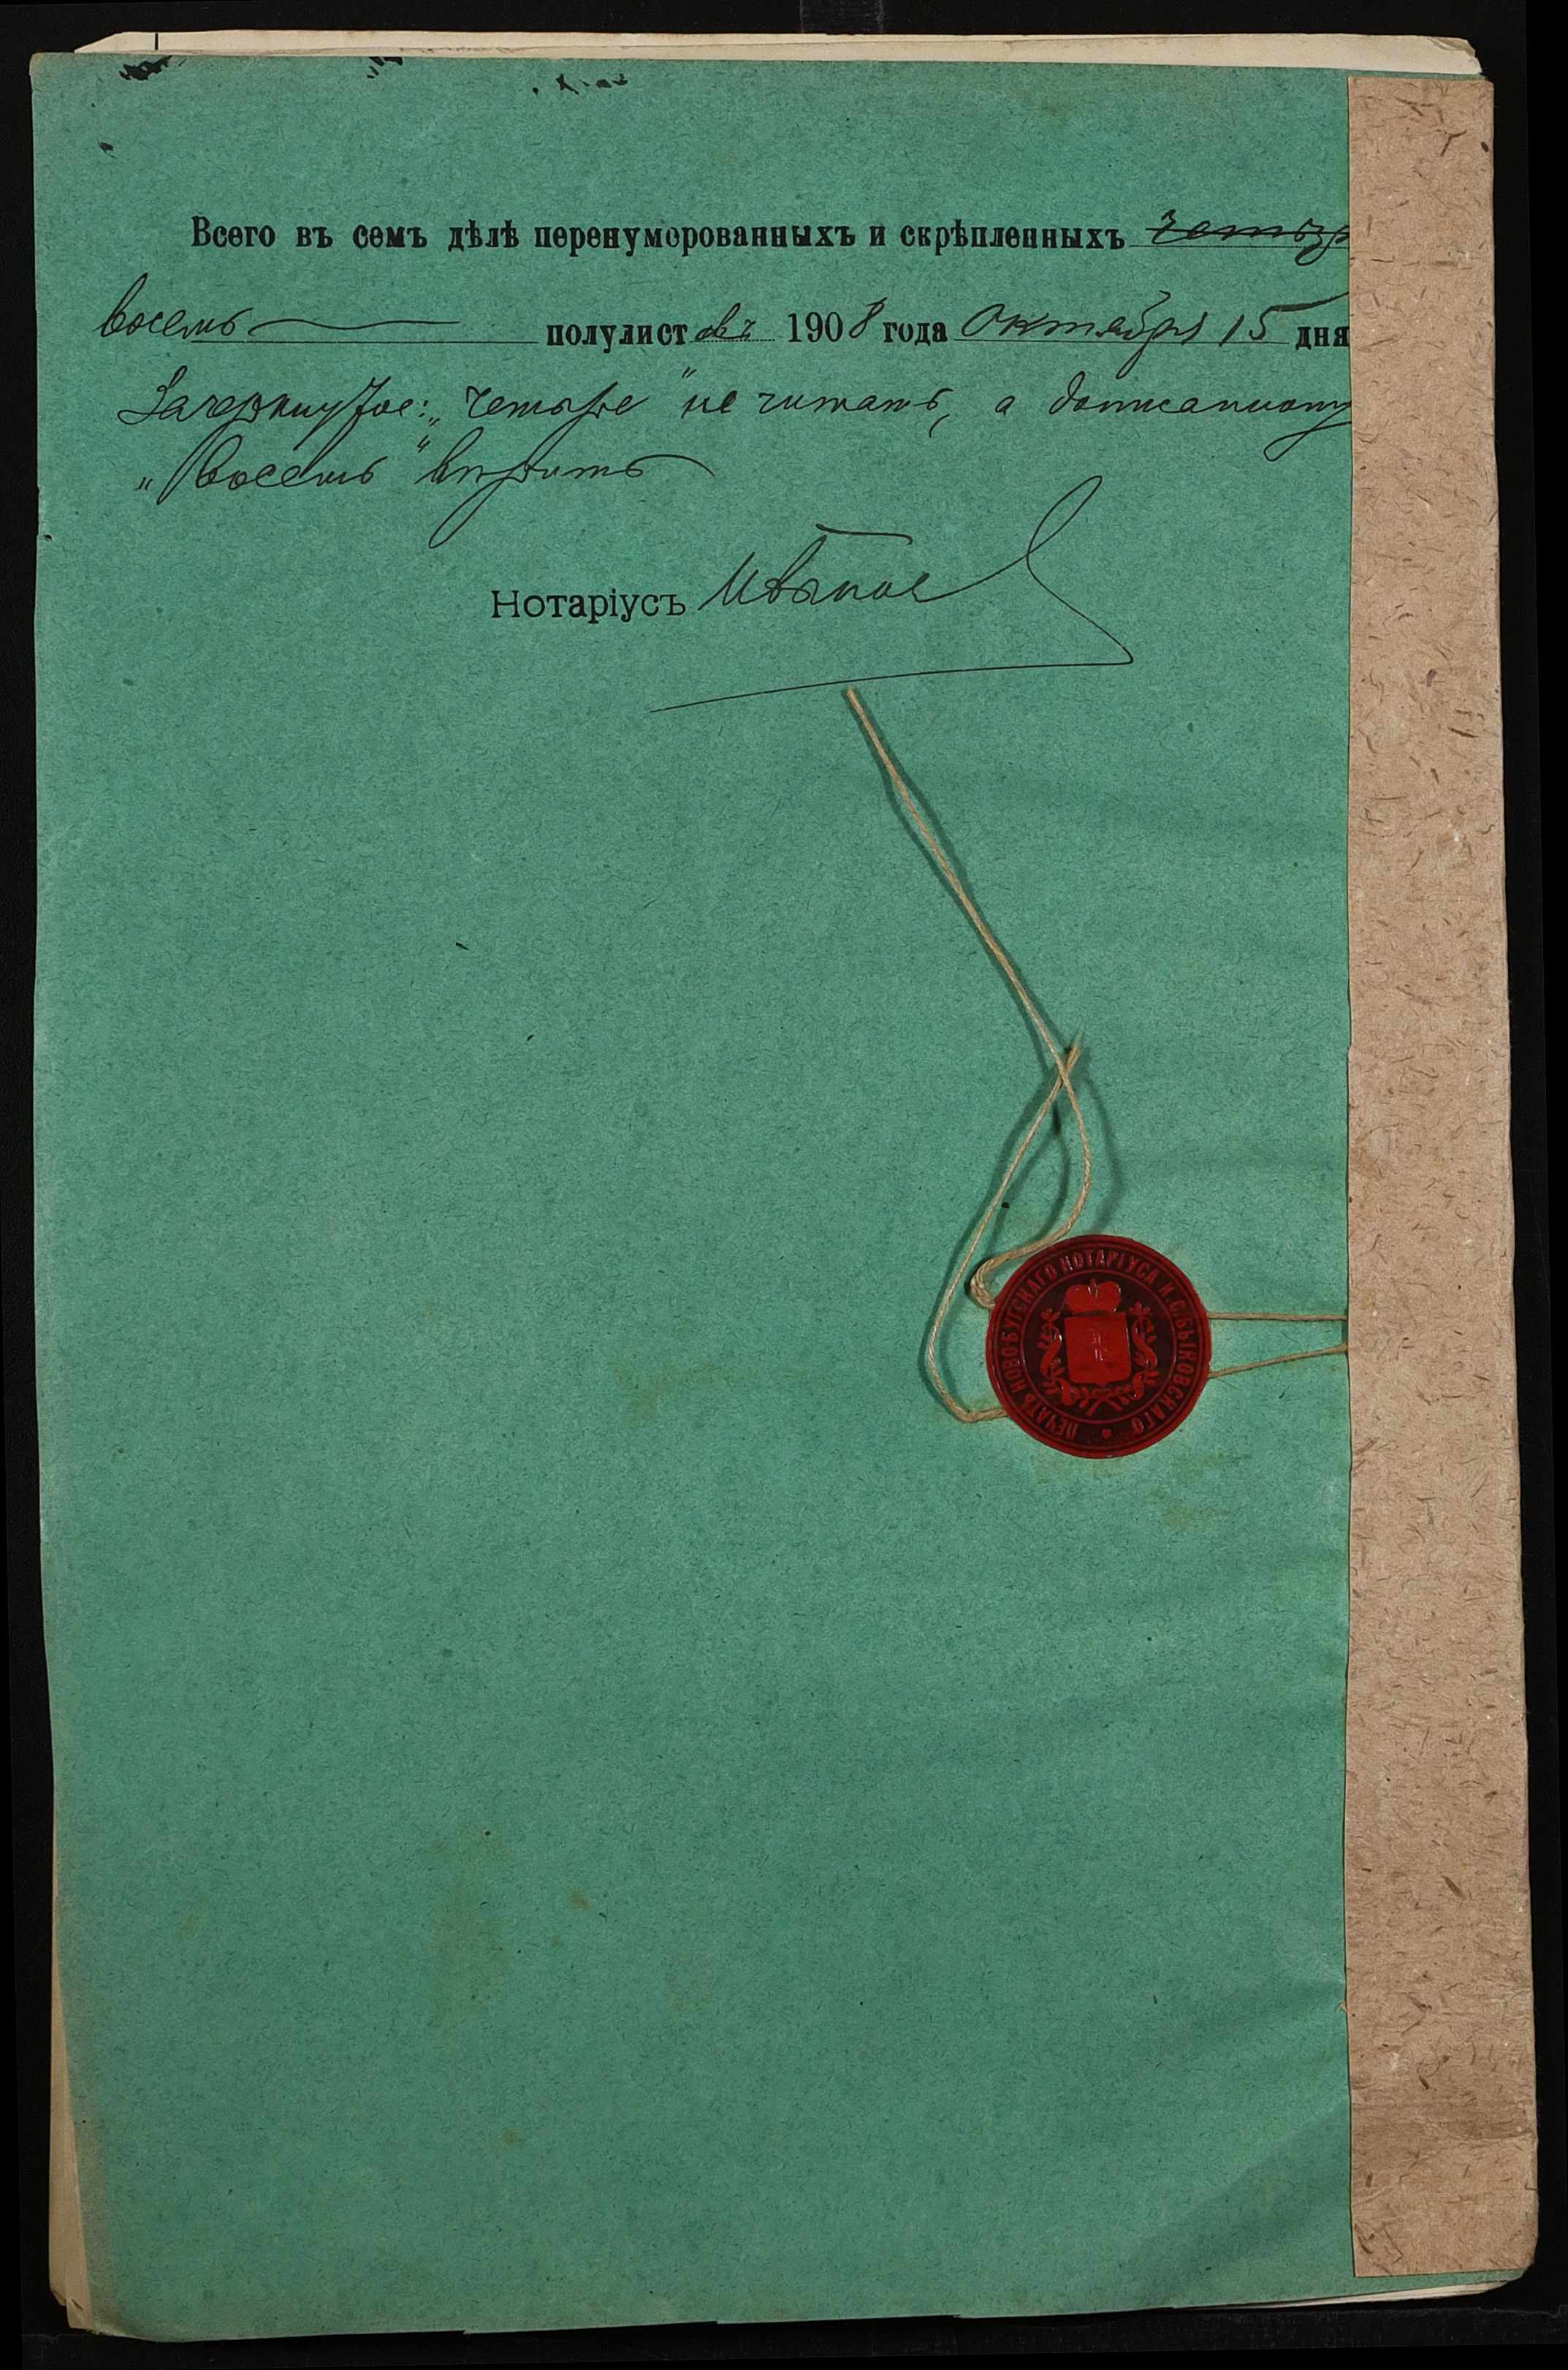 Всего въ семъ дѣлѣ перенумерованныхъ и скрѣпленныхъ четыр
восемь полулистовъ 1908 года Октября 15 дня
Зачеркнутое: „четыре“ не читать, а дописанному
„восемь“ вѣрить
Нотаріусъ
ПЕЧАТЬ НОВО-БУГСКАГО НОТАРІУСА И.С.БЫКОВСКАГО